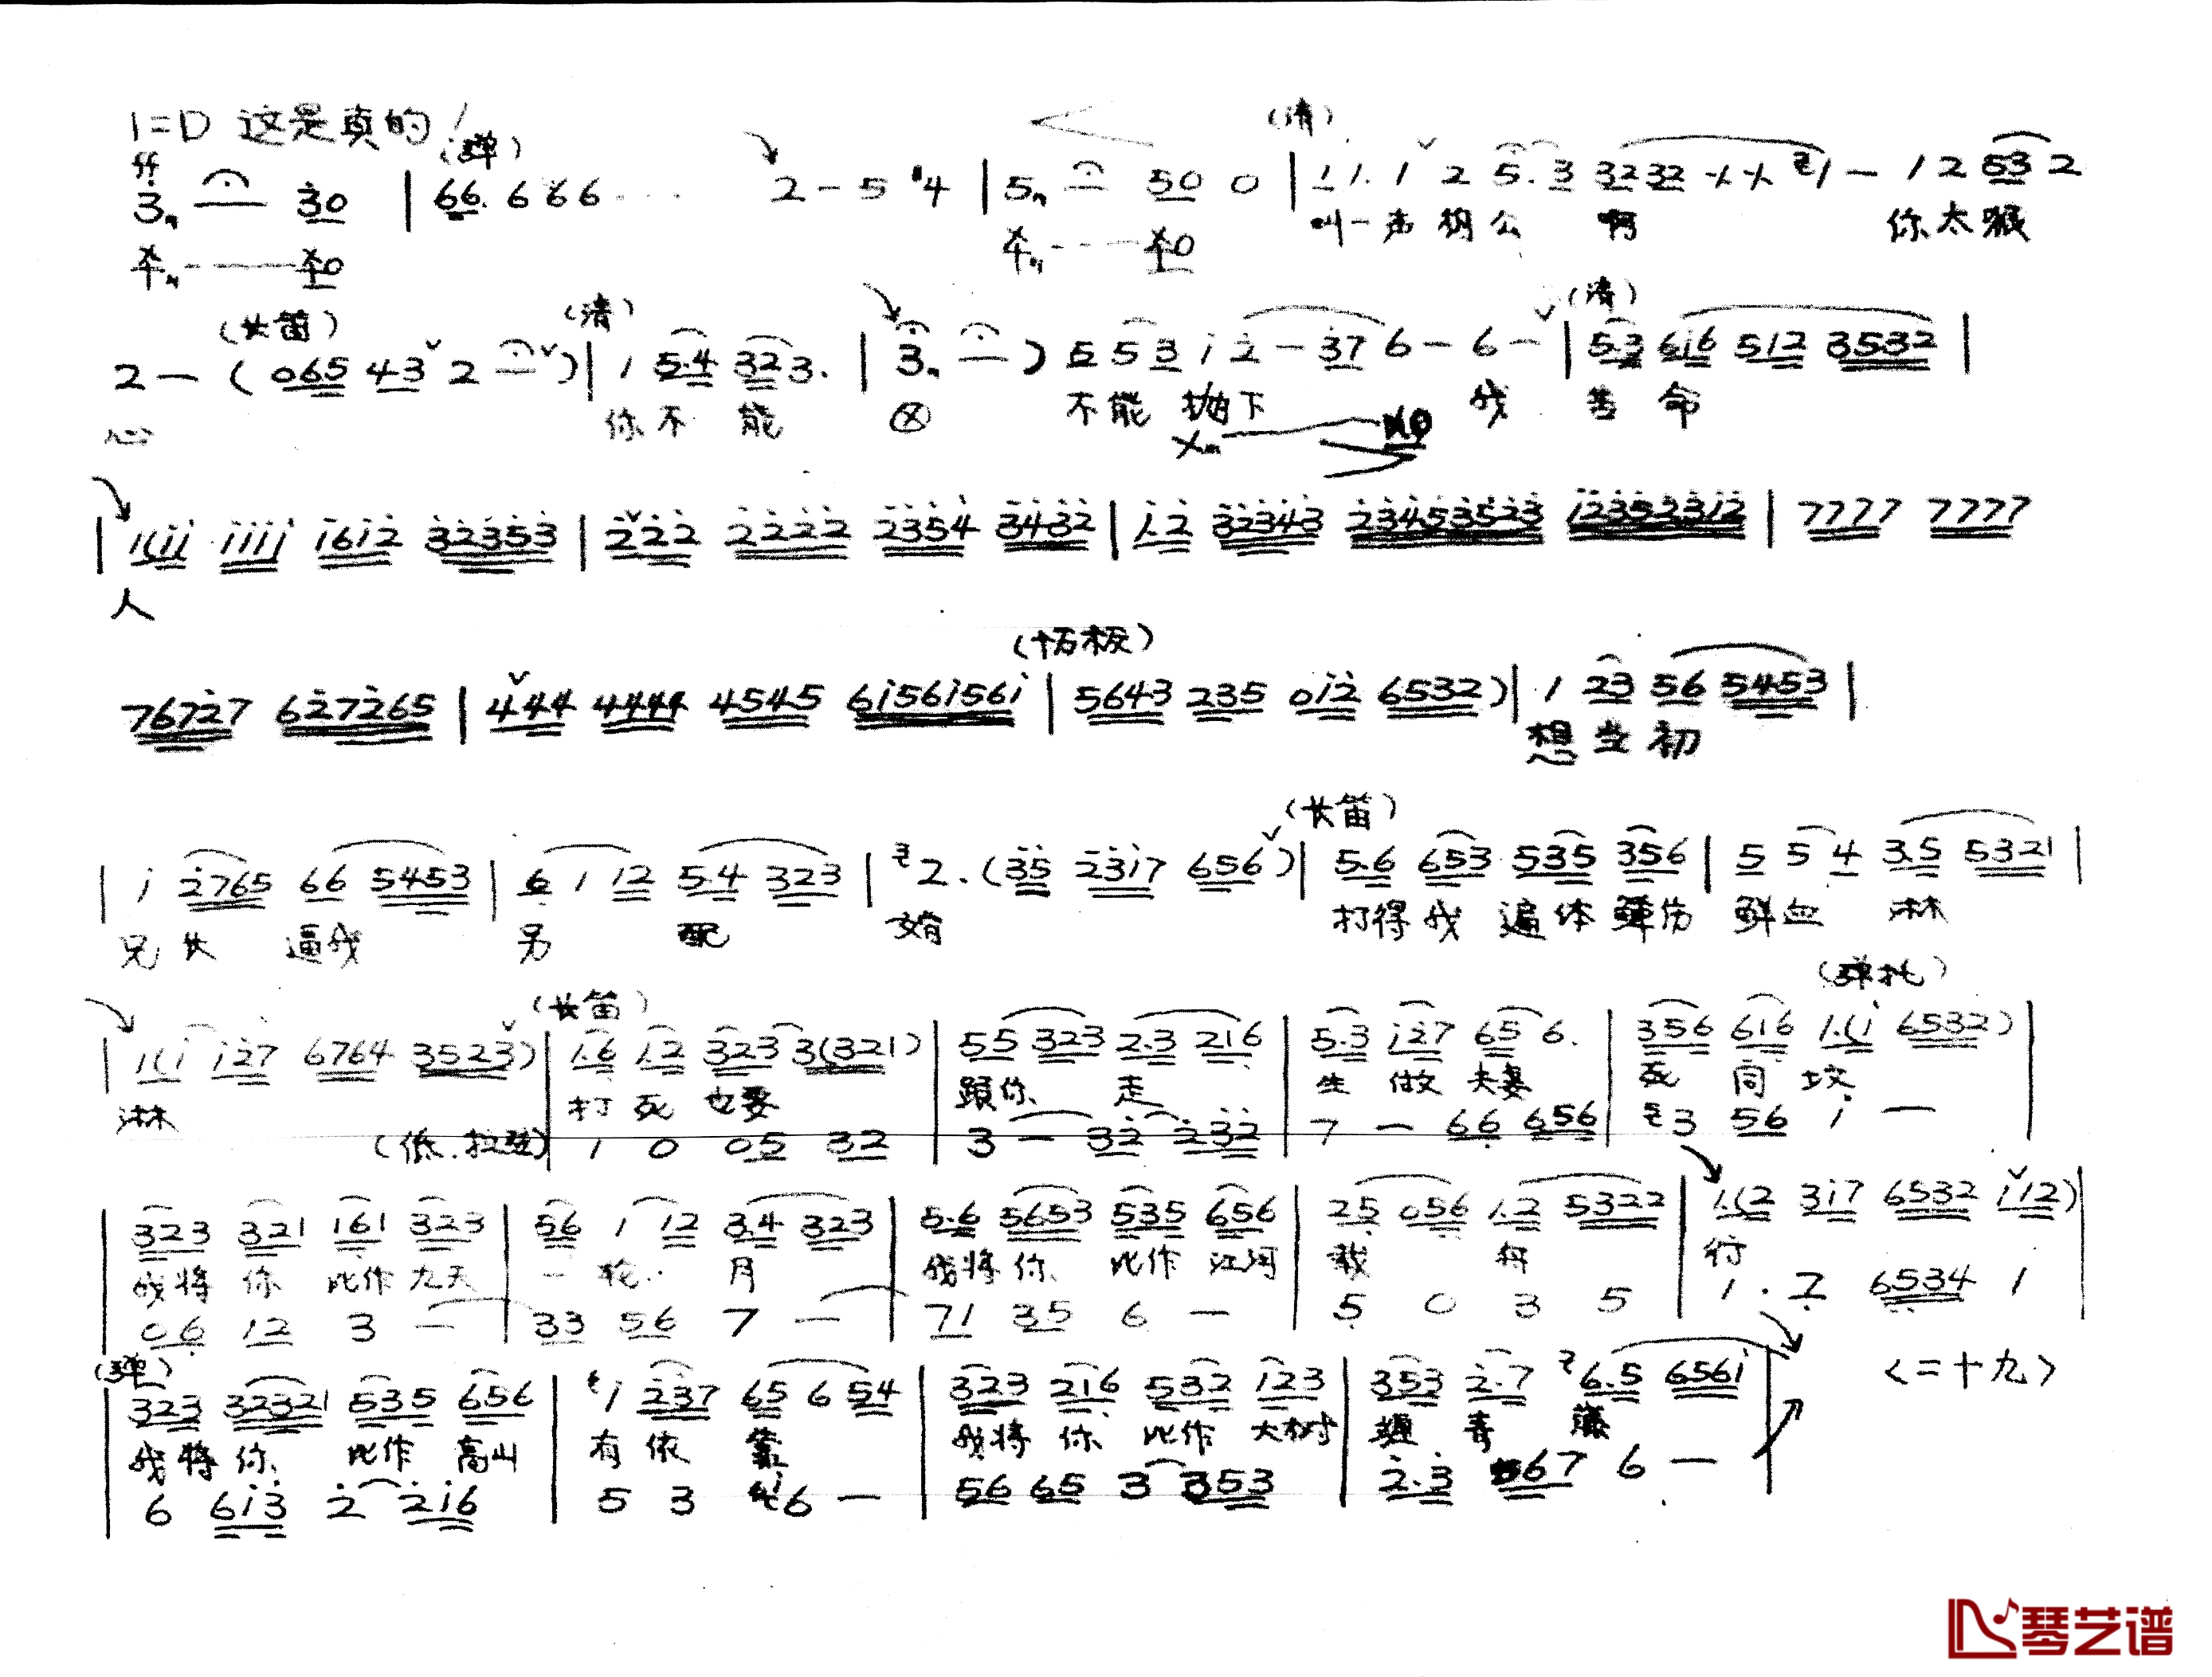 1=D 这是真的!
ff (弹) (清)
3 — 30 | 66. 666 ... 2 - 5 #4 | 5 — 50 0 | 1 1. 1 2 5. 3 3232 1 — 1 2 53 2
叫一声相公 啊 你太狠
(长笛) (清) (清)
2 — ( 065 43 2 — ) | 1 5.4 323. | 3 — ) 5 53 i 2 — 37 6 — 6 — | 5.3 6i6 512 3532 |
心 你不能 不能抛下 我苦命
| 1(ii iiii i6i2 32353 | 222 2222 2354 3432 | i.2 32343 23453523 i23523i2 | 7777 7777
人
(切板)
76727 627265 | 444 4444 4545 6i56i56i | 5643 235 0i2 6532) | 1 23 56 5453 |
想当初
(长笛)
| i 2765 66 5453 | 6 1 12 5.4 323 | 2. (35 23i7 656) | 5.6 653 535 356 | 5 5 4 3.5 5321 |
兄长 逼我 另 配 婚 打得我 遍体 伤 鲜血 淋
(长笛) (弹托)
| 1(i i27 6764 3523) | 1.6 1.2 323 3(321) | 55 323 2.3 216 | 5.3 i27 65 6. | 356 616 1.(i 6532) |
淋 打死也要 跟你 走 生做夫妻 死同坟
(低.拉弦) | 1 0 05 32 | 3 — 32 232 | 7 — 66 656 | 3 56 i — |
| 323 321 161 323 | 56 1 12 3.4 323 | 5.6 5653 535 656 | 25 056 1.2 5322 | 1.(2 3i7 6532 i12) |
我将你 比作九天 一轮 月 我将你 比作江河 载 舟 行
06 12 3 — | 33 56 7 — | 71 35 6 — | 5 0 3 5 | 1 . 2 6534 1
(弹) <二十九>
323 32321 535 656 | i 237 65 6 54 | 323 216 532 123 | 353 2.7 6.5 656i |
我将你 比作 高山 有依 靠 我将你 比作 大树 缠青藤
| 6 6i3 2 2i6 | 5 3 6 — | 56 65 3 353 | 2.3 567 6 — |
琴艺谱